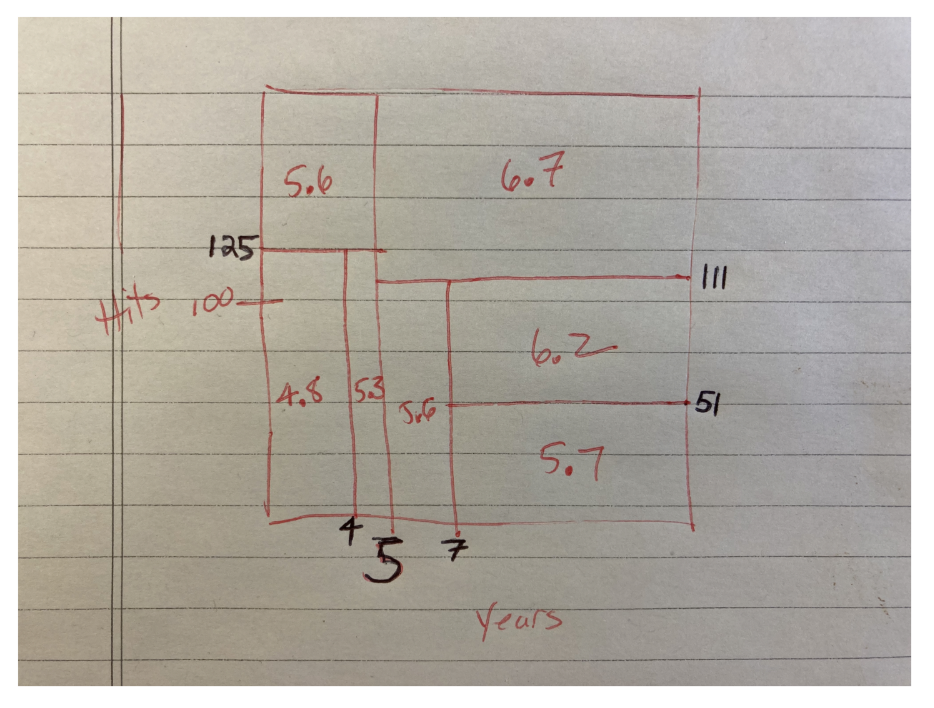 5.6 6.7
125
111
Hits 100
6.2
4.8 5.3 5.6
51
5.7
4 5 7
Years